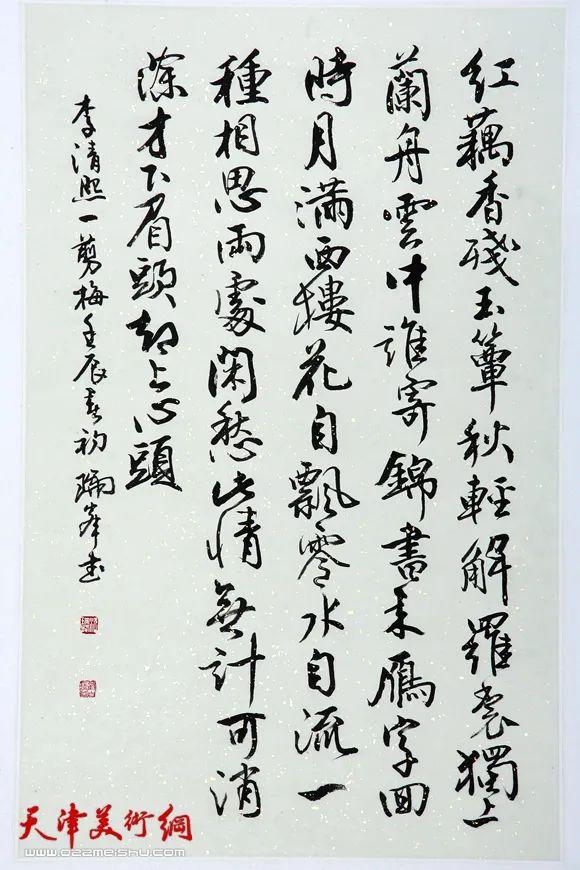 紅藕香殘玉簟秋輕解羅裳獨上
蘭舟雲中誰寄錦書来鴈字回
時月滿西樓花自飄零水自流一
種相思兩處閑愁此情無計可消
除才下眉頭却上心頭
李清照一剪梅壬辰春初瑞峯书
天津美術網
www.022meishu.com